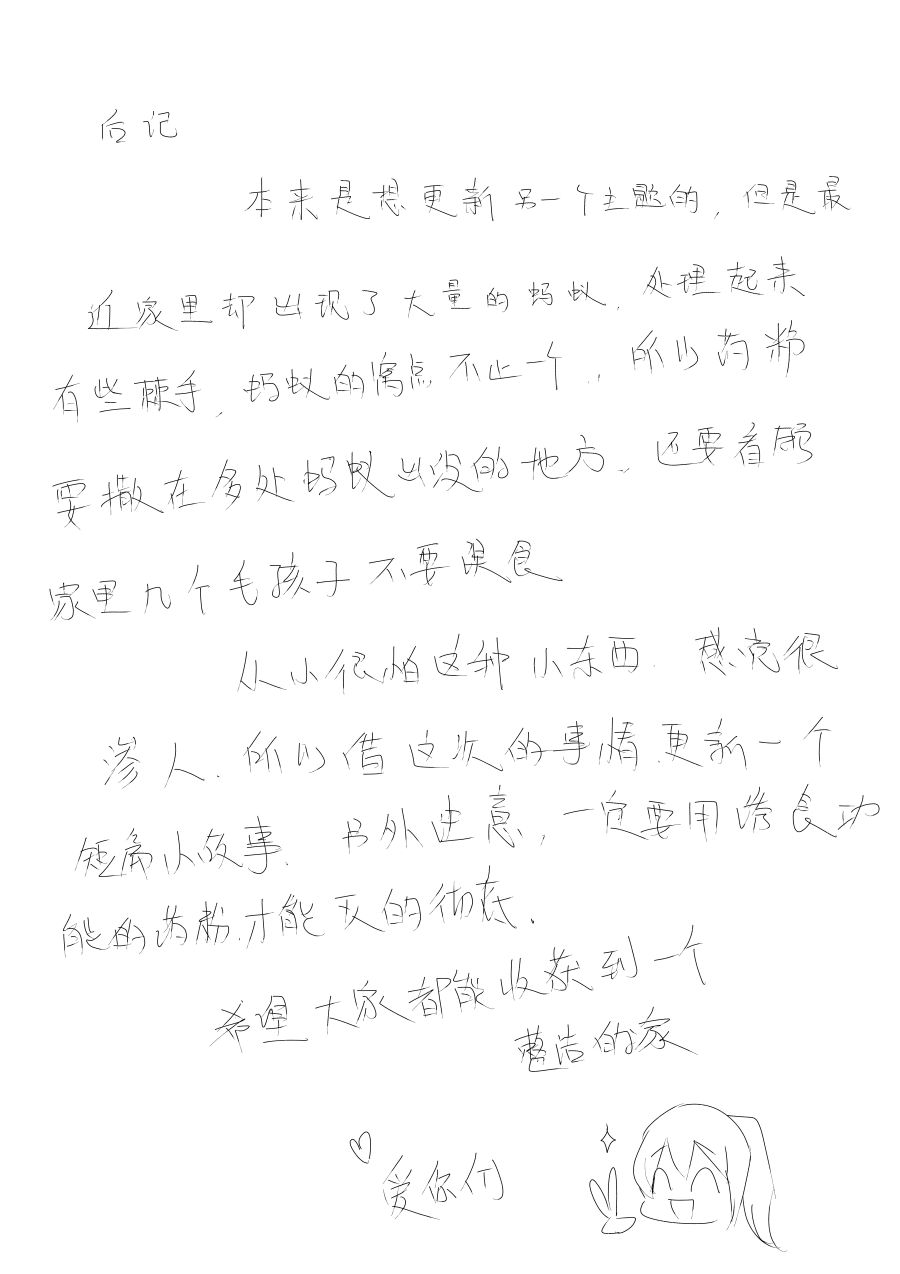 后记
本来是想更新另一个主题的,但是最
近家里却出现了大量的蚂蚁.处理起来
有些棘手,蚂蚁的窝点不止一个.,所以药粉
要撒在多处蚂蚁出没的地方.,还要看顾
家里几个毛孩子不要误食
从小很怕这种小东西.感觉很
渗人.所以借这次的事情更新一个
短篇小故事.另外注意,一定要用诱食功
能的药粉.才能灭的彻底.
希望大家都能收获到一个
整洁的家
爱你们